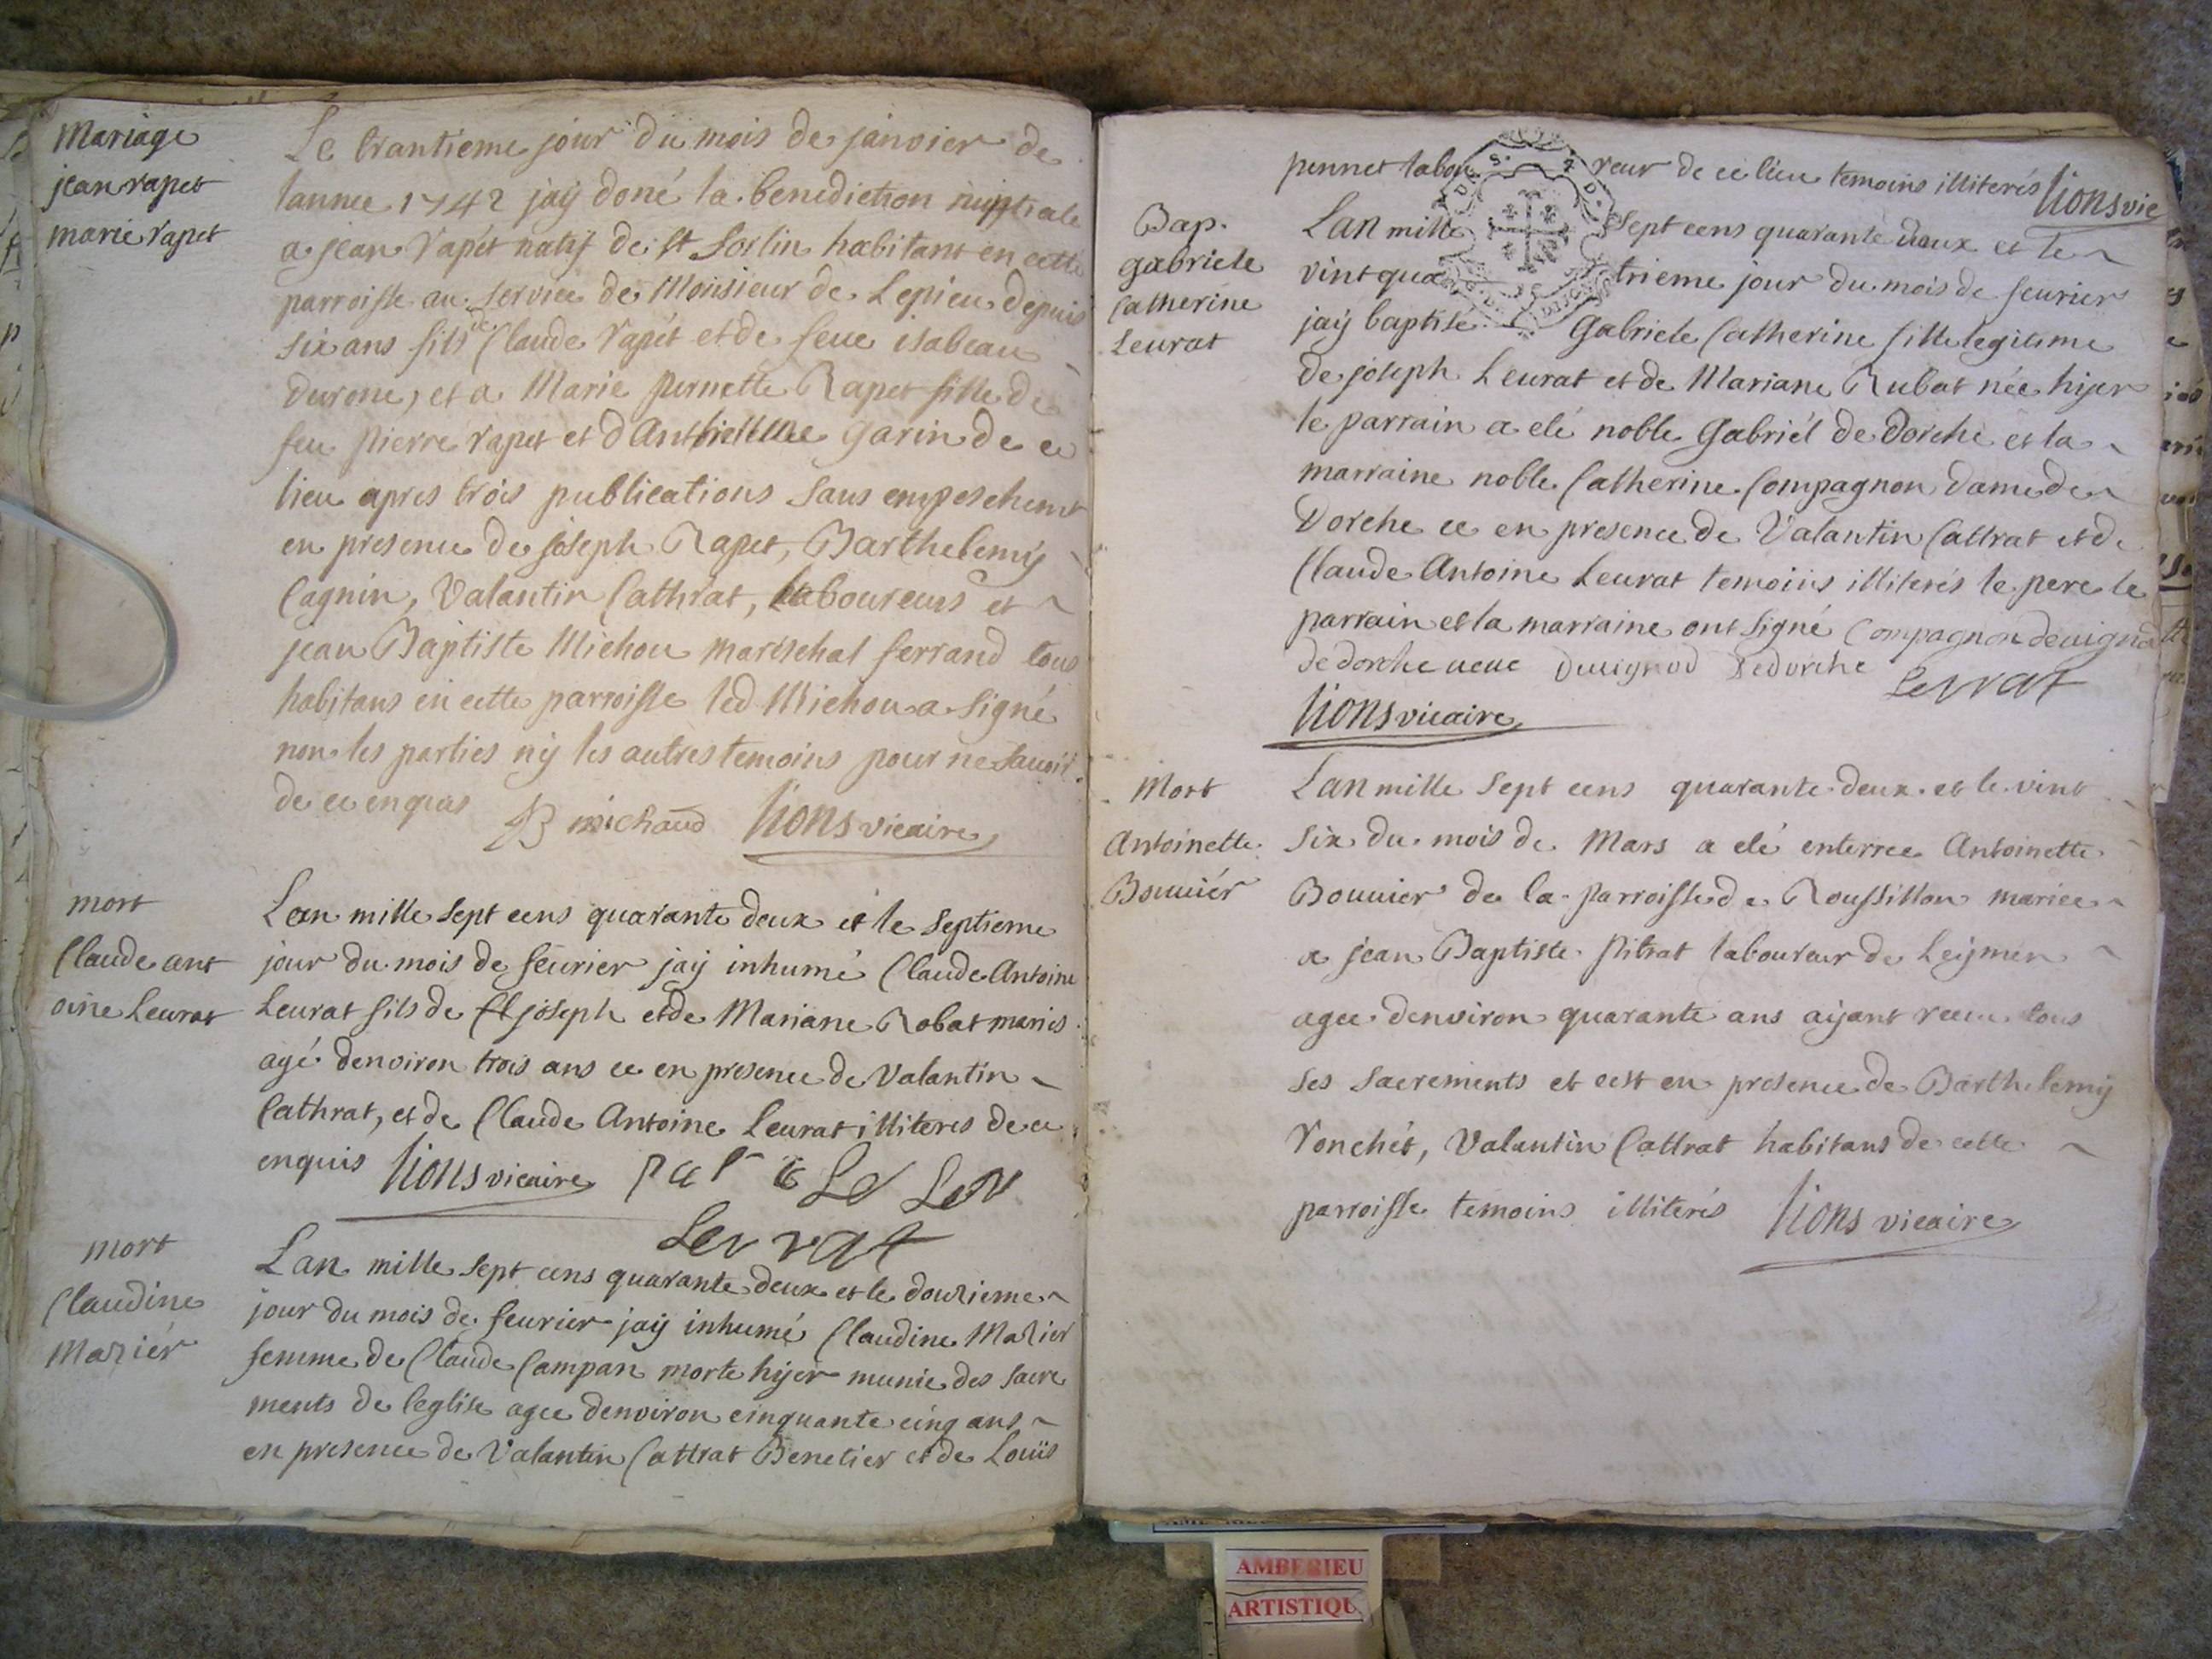 Mariage
jean rapet
marie rapet
Le trantieme jour du mois de janvier de
lannee 1742 jaÿ doné la benediction nuptiale
a jean rapet natif de st Sorlin habitant en cette
parroisse au service de Monsieur de Lepieu depuis
six ans fils de Claude rapet et de feue isabeau
durone, et a Marie pernette Rapet fille de
feu pierre rapet et d Garin de ce
lieu apres trois publications sans empeschemt
en presence de joseph Rapet, Barthelemÿ
Cagnin, Valantin Cathrat, laboureurs et
jean Baptiste Michou mareschal ferrand tous
habitans en cette parroisse led Michou a signé
non les parties nÿ les autres temoins pour ne savoir
de ce enquis JB michaud Lions vicaire
mort
Claude ant
oine Leurat
Lan mille sept cens quarante deux et le septieme
jour du mois de feurier jaÿ inhumé Claude Antoine
Leurat fils de joseph et de Mariane Robat maries
agé denviron trois ans ce en presence de Valantin
Cathrat, et de Claude Antoine Leurat illiteres de ce
enquis Lions vicaire
Leurat
mort
Claudine
Mazier
Lan mille sept cens quarante deux et le douzieme
jour du mois de feurier jaÿ inhumé Claudine Mazier
femme de Claude Campan morte hÿer munie des sacre
ments de leglise agee denviron cinquante cinq ans
en presence de Valantin Cattrat Benetier et de Louïs
pennet labou reur de ce lieu temoins illiterés Lions vic
Bap.
gabriele
Catherine
Leurat
Lan mille sept cens quarante deux et le
vint qua trieme jour du mois de feurier
jaÿ baptisé Gabriele Catherine fille legitime
de joseph Leurat et de Mariane Rubat née hÿer
le parrain a eté noble Gabriel de Dorche et la
marraine noble Catherine Compagnon dame de
Dorche ce en presence de Valantin Cattrat et de
Claude Antoine Leurat temoins illiterés le pere le
parrain et la marraine ont signé Compagnon deuignod
de dorche ueue Deuignod Dedorche Leurat
Lions vicaire
Mort
Antoinette
Bouuiér
Lan mille sept cens quarante deux et le vint
six du mois de Mars a eté enterree Antoinette
Bouuier de la parroisse de Roussillon mariee
a jean Baptiste pitrat laboureur de Leÿmen
agee denviron quarante ans aÿant receu tous
ses sacrements et cest en presence de Barthelemÿ
ronchét, Valantin Cattrat habitans de cette
parroisse temoins illiterés Lions vicaire
AMBERIEU
ARTISTIQU